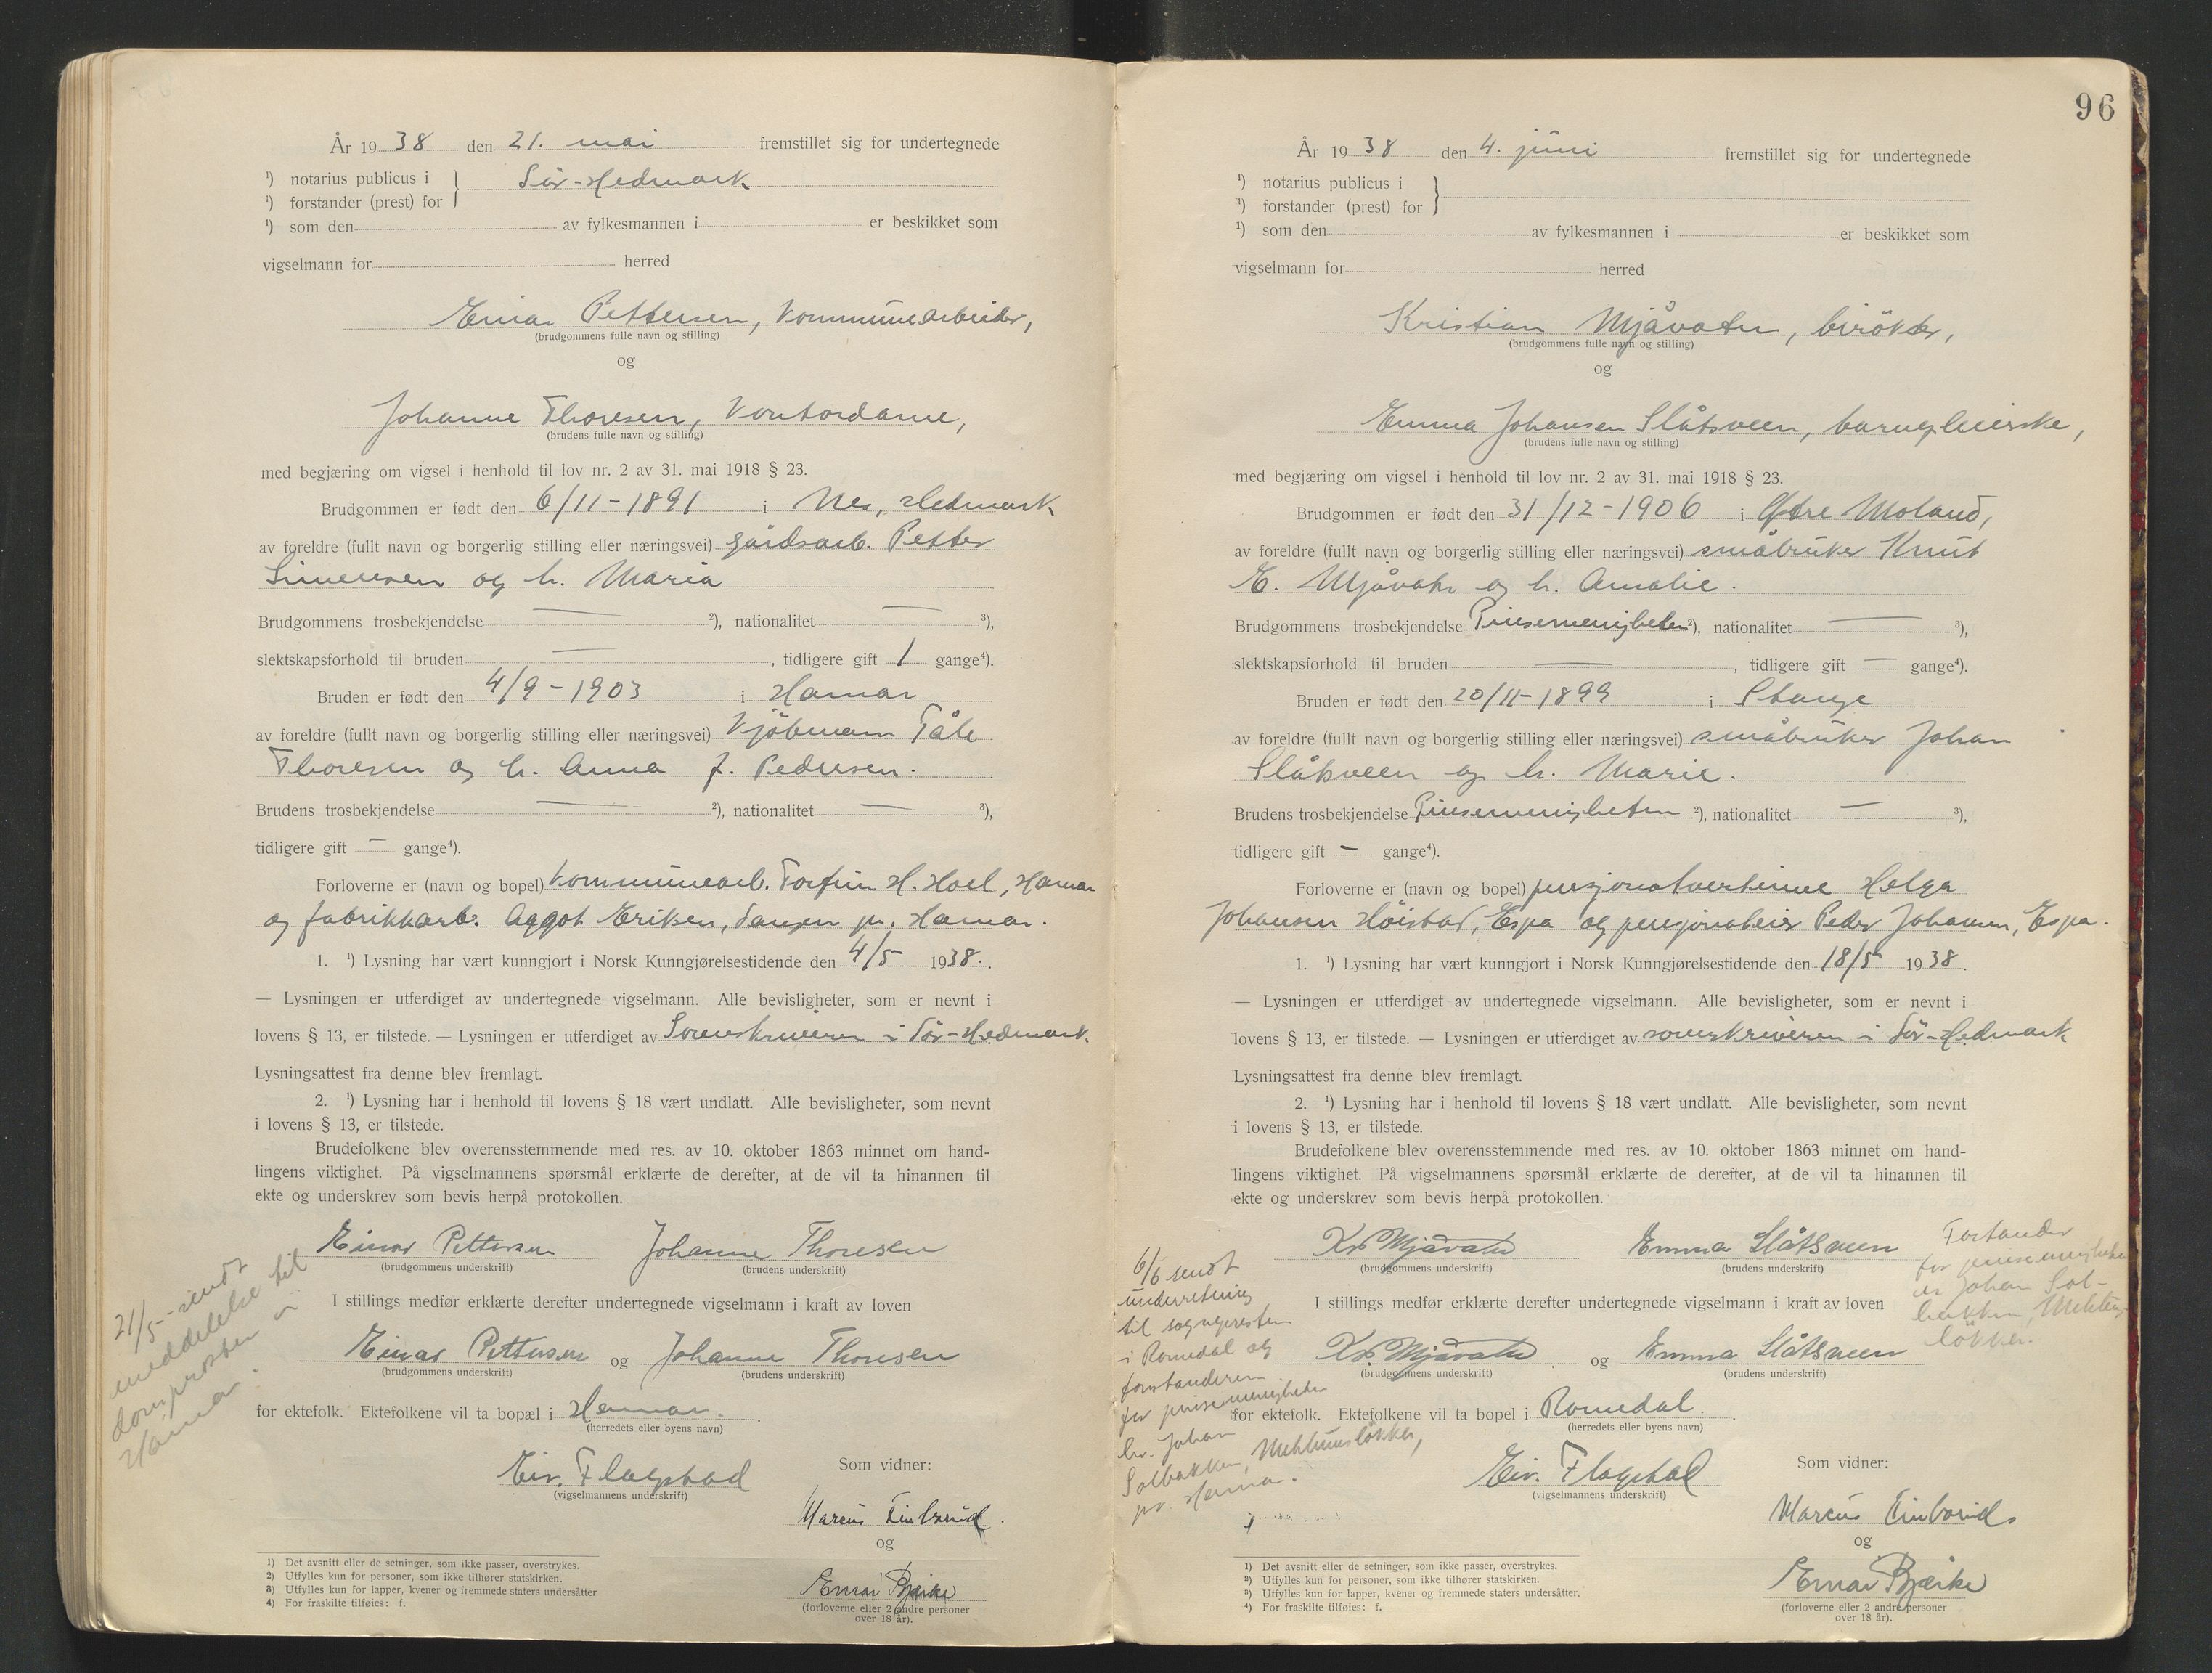 År 1938 den 21. mai fremstillet sig for undertegnede
¹) notarius publicus i } Sör-Hedmark
¹) forstander (prest) for
¹) som den av fylkesmannen i er beskikket som
vigselmann for herred
Einar Pettersen, kommunearbeider,
(brudgommens fulle navn og stilling)
og
Johanne Thoresen, kontordame,
(brudens fulle navn og stilling)
med begjæring om vigsel i henhold til lov nr. 2 av 31. mai 1918 § 23.
Brudgommen er født den 6/11-1891 i Nes, Hedmark
av foreldre (fullt navn og borgerlig stilling eller næringsvei) gårdsarb. Petter
Simensen og h. Maria
Brudgommens trosbekjendelse — ²), nationalitet — ³),
slektskapsforhold til bruden — , tidligere gift 1 gange⁴).
Bruden er født den 4/9-1903 i Hamar
av foreldre (fullt navn og borgerlig stilling eller næringsvei) kjöbmann Påle
Thoresen og h. Anna f. Pedersen.
Brudens trosbekjendelse — ²), nationalitet — ³),
tidligere gift — gange⁴).
Forloverne er (navn og bopel) kommunearb. Torfinn H. Hoel, Hamar
og fabrikkarb. Aagot Eriksen, Tangen pr. Hamar.
1. ¹) Lysning har vært kunngjort i Norsk Kunngjørelsestidende den 4/5 1938.
— Lysningen er utferdiget av undertegnede vigselmann. Alle bevisligheter, som er nevnt i
lovens § 13, er tilstede. — Lysningen er utferdiget av Sorenskriveren i Sör-Hedmark.
Lysningsattest fra denne blev fremlagt.
2. ¹) Lysning har i henhold til lovens § 18 vært undlatt. Alle bevisligheter, som nevnt
i lovens § 13, er tilstede.
Brudefolkene blev overensstemmende med res. av 10. oktober 1863 minnet om hand-
lingens viktighet. På vigselmannens spørsmål erklærte de derefter, at de vil ta hinannen til
ekte og underskrev som bevis herpå protokollen.
Einar Pettersen Johanne Thoresen
(brudgommens underskrift) (brudens underskrift)
I stillings medfør erklærte derefter undertegnede vigselmann i kraft av loven
Einar Pettersen og Johanne Thoresen
(brudgommens underskrift) (brudens underskrift)
for ektefolk. Ektefolkene vil ta bopæl i Hamar.
(herredets eller byens navn)
Eiv. Flagstad
(vigselmannens underskrift)
Som vidner:
Marcus Finborud.
og
Einar Bjerke
(forloverne eller 2 andre personer
over 18 år).
21/5-sendt
meddelelse til
domprosten i
Hamar.
¹) Det avsnitt eller de setninger, som ikke passer, overstrykes.
²) Utfylles kun for personer, som ikke tilhører statskirken.
³) Utfylles kun for lapper, kvener og fremmede staters undersåtter
⁴) For fraskilte tilføies: f.
96
År 1938 den 4. juni fremstillet sig for undertegnede
¹) notarius publicus i }
¹) forstander (prest) for
¹) som den av fylkesmannen i er beskikket som
vigselmann for herred
Kristian Mjåvatn, birökter,
(brudgommens fulle navn og stilling)
og
Emma Johansen Slåtsveen, barnepleierske,
(brudens fulle navn og stilling)
med begjæring om vigsel i henhold til lov nr. 2 av 31. mai 1918 § 23.
Brudgommen er født den 31/12-1906 i Østre Moland,
av foreldre (fullt navn og borgerlig stilling eller næringsvei) småbruker Knut
E. Mjåvatn og h. Amalie.
Brudgommens trosbekjendelse Pinsemenigheten ²), nationalitet — ³),
slektskapsforhold til bruden — , tidligere gift — gange⁴).
Bruden er født den 20/11-1899 i Stange
av foreldre (fullt navn og borgerlig stilling eller næringsvei) småbruker Johan
Slåtsveen og h. Marie.
Brudens trosbekjendelse Pinsemenigheten ²), nationalitet — ³),
tidligere gift — gange⁴).
Forloverne er (navn og bopel) pensjonatvertinne Helga
Johansen Höistad, Espa og pensjonateier Peder Johansen, Espa.
1. ¹) Lysning har vært kunngjort i Norsk Kunngjørelsestidende den 18/5 1938.
— Lysningen er utferdiget av undertegnede vigselmann. Alle bevisligheter, som er nevnt i
lovens § 13, er tilstede. — Lysningen er utferdiget av sorenskriveren i Sör-Hedmark
Lysningsattest fra denne blev fremlagt.
2. ¹) Lysning har i henhold til lovens § 18 vært undlatt. Alle bevisligheter, som nevnt
i lovens § 13, er tilstede.
Brudefolkene blev overensstemmende med res. av 10. oktober 1863 minnet om hand-
lingens viktighet. På vigselmannens spørsmål erklærte de derefter, at de vil ta hinannen til
ekte og underskrev som bevis herpå protokollen.
Kr. Mjåvatn Emma Slåtsveen
(brudgommens underskrift) (brudens underskrift)
Forstander
for pinsemenigheten
er Johan Sol-
bakken, Mehlum-
løkken.
I stillings medfør erklærte derefter undertegnede vigselmann i kraft av loven
Kr. Mjåvatn. og Emma Slåtsveen
(brudgommens underskrift) (brudens underskrift)
for ektefolk. Ektefolkene vil ta bopel i Romedal.
(herredets eller byens navn)
Eiv. Flagstad
(vigselmannens underskrift)
Som vidner:
Marcus Finborud
og
Einar Bjerke
(forloverne eller 2 andre personer
over 18 år).
6/6 sendt
underretning
til sognepresten
i Romedal og
forstanderen
for pinsemenigheten
hr. Johan
Solbakken, Mehlumsløkken,
pr. Hamar.
¹) Det avsnitt eller de setninger, som ikke passer, overstrykes.
²) Utfylles kun for personer, som ikke tilhører statskirken.
³) Utfylles kun for lapper, kvener og fremmede staters undersåtter.
⁴) For fraskilte tilføies: f.